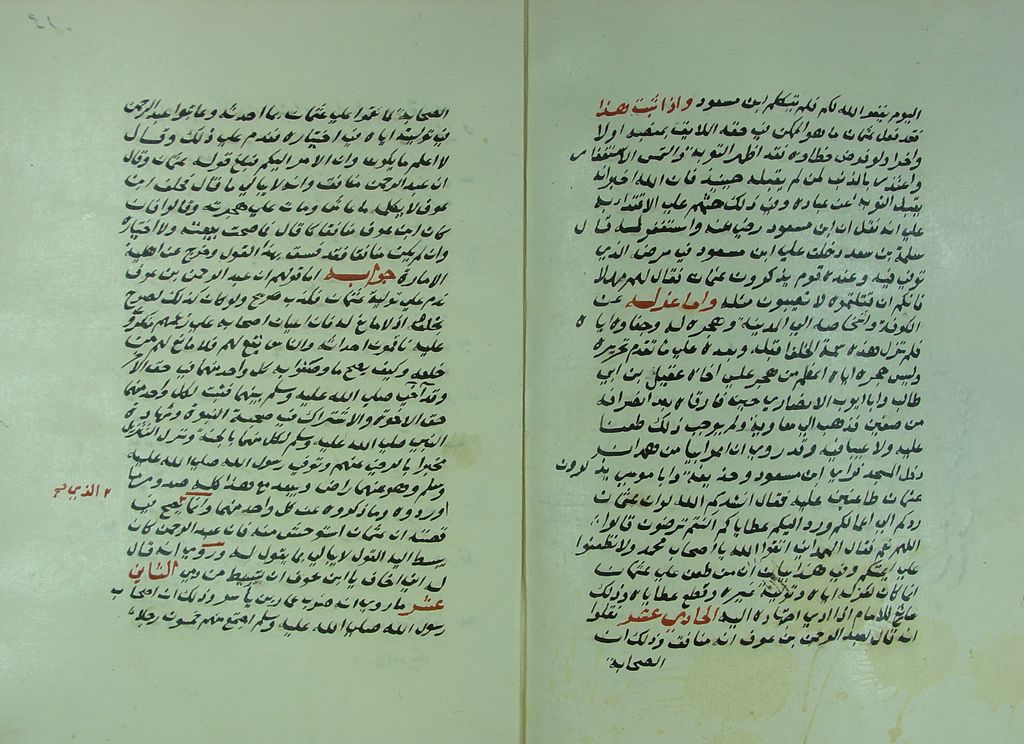 اليوم يغفر الله لكم فلم يتكلم ابن مسعود واذا ثبت هذا
فقد فعل عثمان ما هو الممكن في حقه اللائق بمنصبه اولا
وآخرا ولو فرض خطاوه فقد اظهر التوبة والتمس الاستغفار
واعتذر بالذنب لمن لم يقبله حينئذ فان الله اخبر انه
يقبل التوبة عن عباده وفي ذلك حثهم علي الاقتداء به
علي انه نقل ان ابن مسعود رضي عنه واستغفر له قال
سلمة بن سعد دخلت علي ابن مسعود في مرضه الذي
توفي فيه وعنده قوم يذكرون عثمان فقال لهم مهلا
فانكم ان قتلتموه لا تصيبون مثله واما عزله عن
الكوفة واشخاصه الي المدينة وهجره له وجفاوه اياه
فلم تزل هذه سمة الخلفا قبله وبعده علي ما تقدم تحريره
وليس هجره اياه اعظم من هجر علي اخاه عقيل بن ابي
طالب وابا ايوب الانصاري حين فارقاه بعد انصرافه
من صفين فذهب الي معاوية ولم يوجب ذلك طعنا
عليه ولا عيبا فيه وقد روي ان اعرابيا من همدان
دخل المسجد فراي ابن مسعود وحذيفة وابا موسي يذكرون
عثمان طاعنين عليه فقال انشدكم الله لو ان عثمان
ردكم الي اعمالكم ورد اليكم عطاياكم اكنتم ترضون قالوا
اللهم نعم فقال الهمداني اتقوا الله يا اصحاب محمد ولا تطعنوا
علي ايمتكم وفي هذا بيان ان من طعن علي عثمان
انما كان لعزله اياه وتولية غيره وقطع عطاياه وذلك
سائغ للامام اذا ادي اجتهاده اليه الحادي عشر نقلوا
انه قال لعبد الرحمن بن عوف انه منافق وذلك ان
الصحابة
الصحابة لما نقموا علي عثمان ما احدثه وعاتبوا عبد الرحمن
في توليته اياه في اختياره فندم علي ذلك وقال
لا اعلم ما يكون وان الامر اليكم فبلغ قوله عثمان وقال
ان عبد الرحمن منافق وانه لا يبالي ما قال فحلف ابن
عوف لا يكلمه ما عاش ومات علي هجرته وقالوا فان
كان ابن عوف منافقا كما قال فما صحت بيعته ولا اختياره
وان لم يكن منافقا فقد فسق بهذا القول وخرج عن اهلية
الامارة جوابه اما قولهم ان عبد الرحمن بن عوف
ندم علي تولية عثمان فكذب صريح ولو كان كذلك لصرح
بخلعه اذ لا مانع له فان اعيان اصحابه علي زعمهم منكرون
عليه ناقمون احداثه والناس تبع لهم فلا مانع لهم من
خلعه وكيف يصح ما وصفوا به كل واحد منهما في حق الاخر
وقد آخي صلي الله عليه وسلم بينهما فثبت لكل واحد منهما
حق الاخوة والاشتراك في صحبة النبوة وشهادة
النبي صلي الله عليه وسلم لكل منهما بالجنة ونزل التنزيل
مخبرا بالرضي عنهم وتوفي رسول الله صلي الله عليه
وسلم وهو عنهما راض ويبعد مع هذا كله صدور ما
اوردوه وما ذكروه عن كل واحد منهما وانما يصح في
قصته ان عثمان استوحش منه فان عبد الرحمن كان
يبسط اليه القول لا يبالي بما يقول له وروي انه قال
له اني اخاف يا ابن عوف ان تبسط من دمي الثاني
عشر ما روي انه ضرب عمار بن ياسر وذلك ان اصحاب
رسول الله صلي الله عليه وسلم اجتمع منهم خمسون رجلا
الذي صح